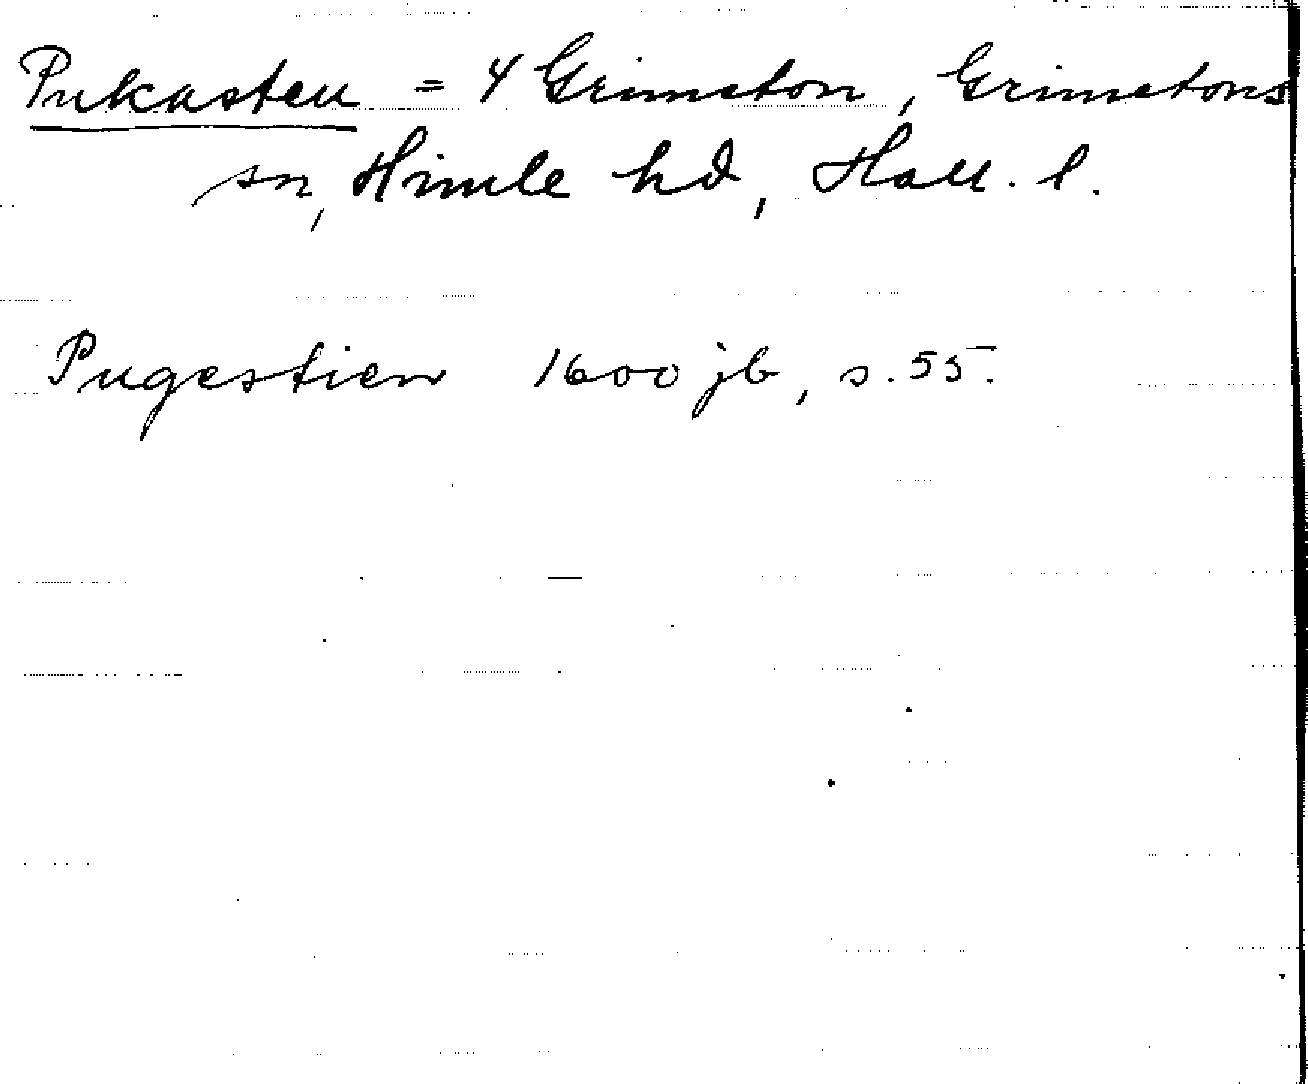 Pukasten = 4 Grimeton, Grimetons
sn, Himle hd, Hall. l.
Pugestien 1600 jb, s. 55.